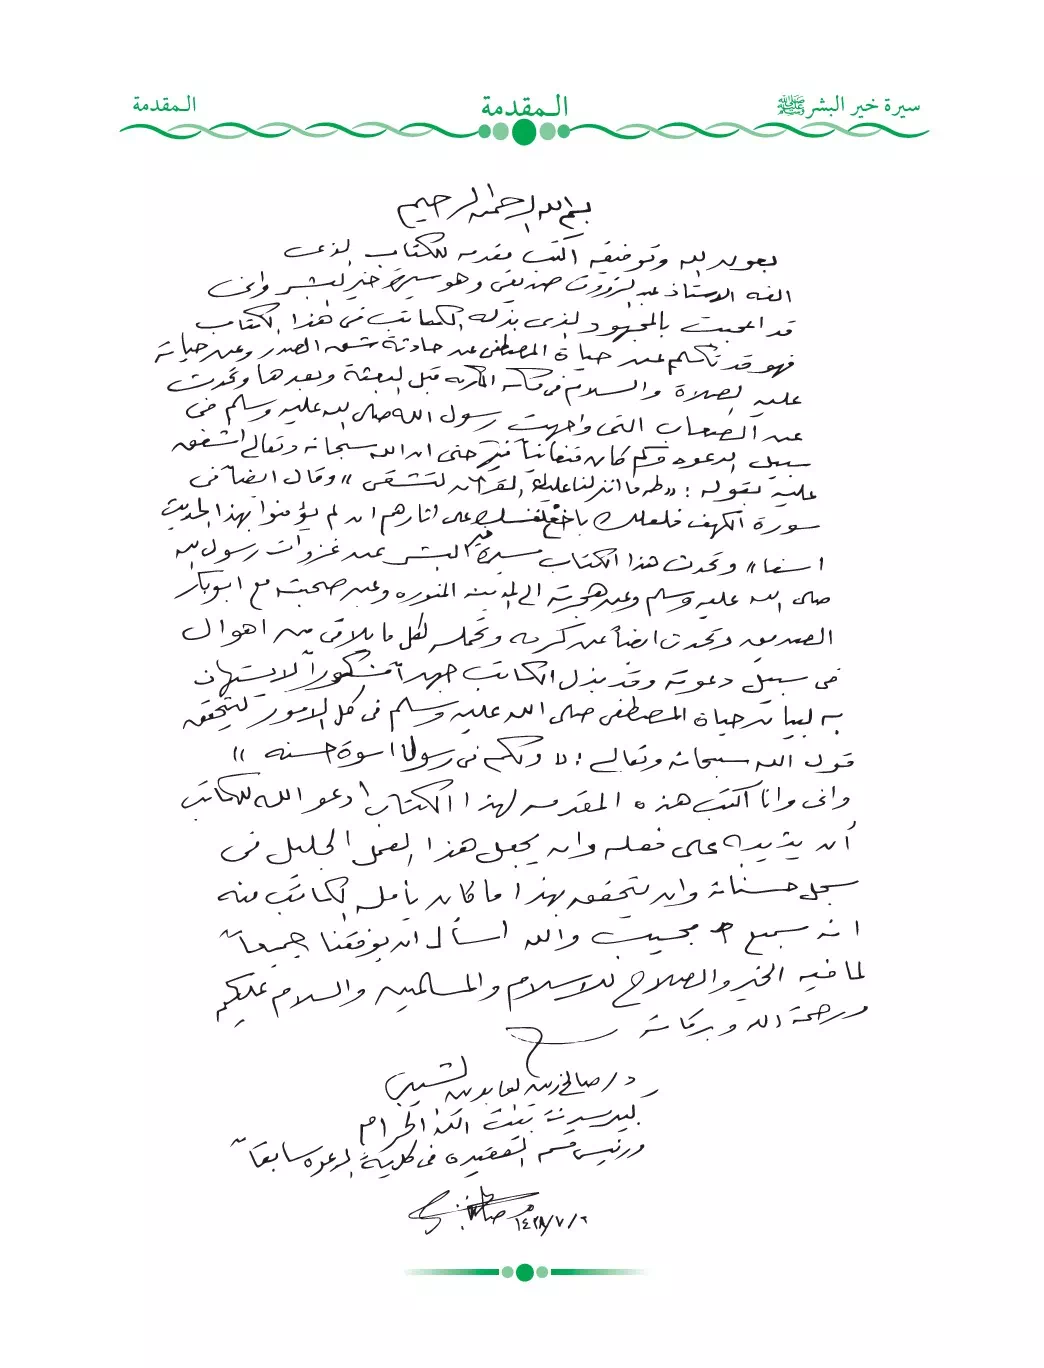 سيرة خير البشر ﷺ
المقدمة
المقدمة
بسم الله الرحمن الرحيم
بعون الله وتوفيقه اكتب مقدمه للكتاب الذى
الفه الاستاذ عبد الرؤوف صديقى وهو سيرة خير البشر وانى
قد اعجبت بالمجهود الذى بذله الكاتب فى هذا الكتاب
فهو قد تكلم عن حياة المصطفى عن حادثة شق الصدر وعن حياته
عليه الصلاة والسلام فى مكه المكرمه قبل البعثة وبعدها وتحدث
عن الصعاب التى واجهت رسول الله صلى الله عليه وسلم فى
سبيل الدعوه وكم كان متفانياً حتى ان الله سبحانه وتعالى اشفق
عليه بقوله : « طه ما انزلنا عليك القرآن لتشقى » وقال ايضاً فى
سورة الكهف فلعلك باخع نفسك على اثارهم ان لم يؤمنوا بهذا الحديث
اسفا » وتحدث هذا الكتاب سيرة خير البشر عن غزوات رسول الله
صلى الله عليه وسلم وعن هجرته الى المدينه المنوره وعن صحبته مع ابوبكر
الصديق وتحدث ايضاً عن كرمه وتحمله لكل ما يلاقى من اهوال
فى سبيل دعوته وقد بذل الكاتب جهداً مشكوراً لا يستهان
به لبيان حياة المصطفى صلى الله عليه وسلم فى كل الامور ليتحقق
قول الله سبحانه وتعالى : « ولكم فى رسول اسوة حسنه »
وانى وانا اكتب هذه المقدمه لهذا الكتاب ادعو الله للكاتب
أن يثيبه على فعله وان يجعل هذا العمل الجليل فى
سجل حسناته وان يتحقق بهذا ما كان يأمله الكاتب منه
انه سميع مجيب والله اسأل ان يوفقنا جميعاً
لما فيه الخير والصلاح للاسلام والمسلمين والسلام عليكم
ورحمة الله وبركاته
د/ صالح زين العابدين الشيبى
كبير سدنة بيت الله الحرام
ورئيس قسم العقيده فى كلية الدعوه سابقاً
١٤٣٨/٧/٢